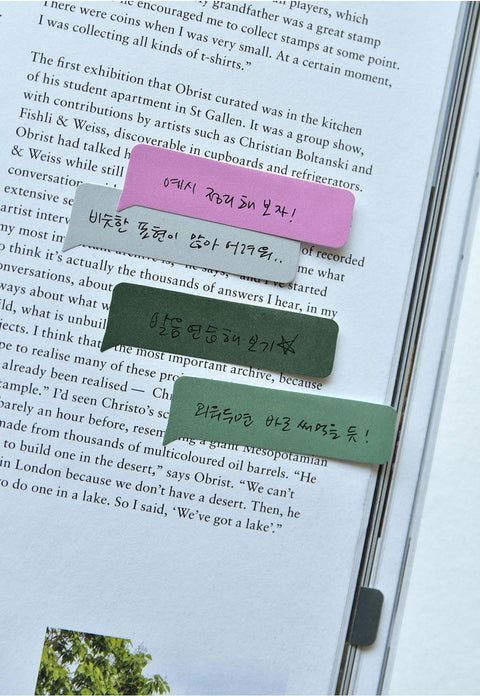 players, which
he encouraged me to collect stamps at some point.
There were coins when I was very small. At a certain moment,
I was collecting all kinds of t-shirts.”
The first exhibition that Obrist curated was in the kitchen
of his student apartment in St Gallen. It was a group show,
with contributions by artists such as Christian Boltanski and
Fishli & Weiss, discoverable in cupboards and refrigerators.
Obrist had talked
& Weiss while still
conversation
예시 정리해 보자!
extensive se
of recorded
비슷한 표현이 많아 어려워..
artist interv
me what
my most in
started
to think it’s actually the thousands of answers I hear, in my
onversations, about
ways about what w
발음 연습해 보기☆
ild, what is unbuil
jects. I think that the most important archive, because
pe to realise many of these pro
already been realised — Ch
외워두면 바로 써먹을 듯!
ample.” I’d seen Christo’s sc
barely an hour before, resem a giant Mesopotamian
made from thousands of multicoloured oil barrels. “He
to build one in the desert,” says Obrist. “We can’t
in London because we don’t have a desert. Then, he
to do one in a lake. So I said, ‘We’ve got a lake’.”